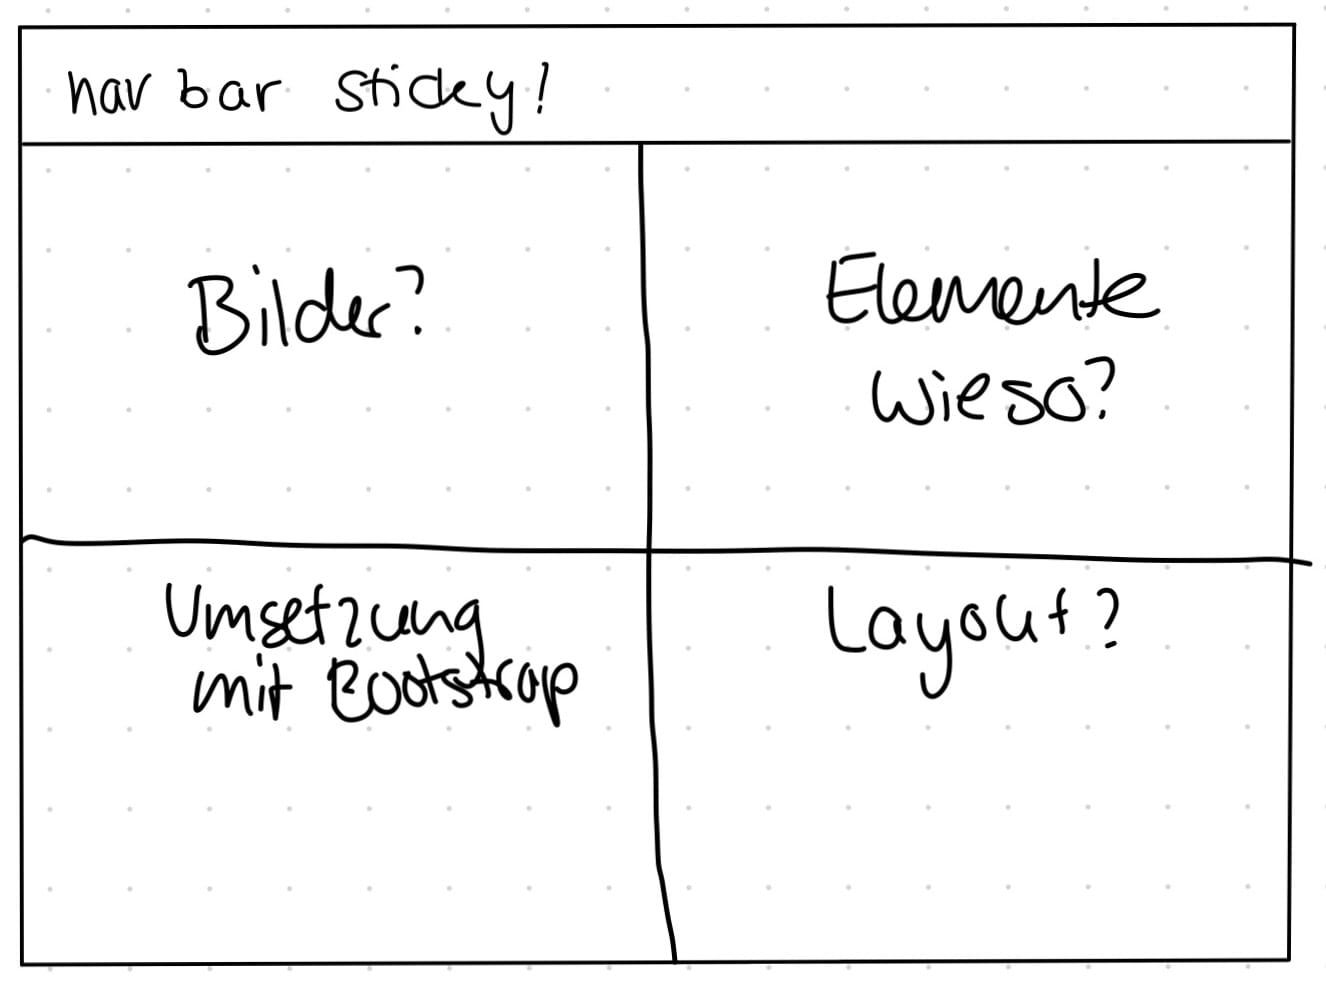 nav bar sticky!
Bilder?
Elemente
wieso?
Umsetzung
mit Bootstrap
Layout?